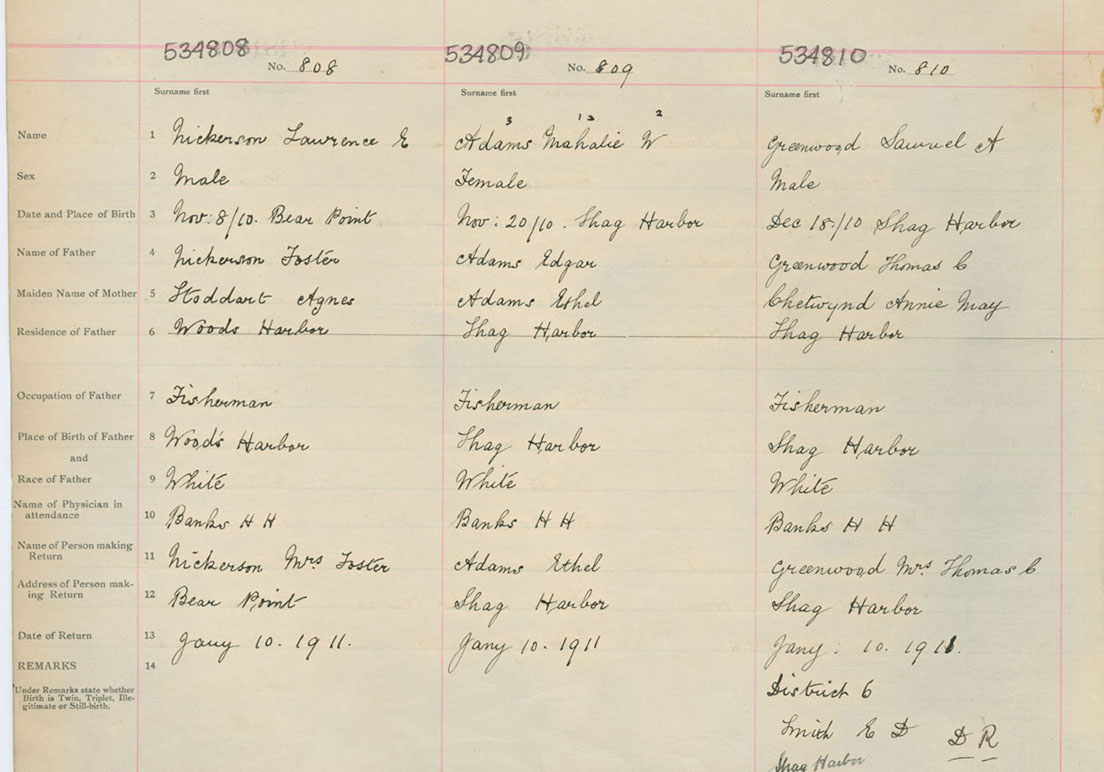 534808 534809 534810
No. 808 No. 809 No. 810
Surname first Surname first Surname first
3 1 2
Name 1 Nickerson Lawrence E Adams Mahalie W Greenwood Samuel A
Sex 2 Male Female Male
Date and Place of Birth 3 Nov: 8/10. Bear Point Nov: 20/10. Shag Harbor Dec 18/10 Shag Harbor
Name of Father 4 Nickerson Foster Adams Edgar Greenwood Thomas C
Maiden Name of Mother 5 Stoddart Agnes Adams Ethel Chetwynd Annie May
Residence of Father 6 Woods Harbor Shag Harbor Shag Harbor
Occupation of Father 7 Fisherman Fisherman Fisherman
Place of Birth of Father 8 Woods Harbor Shag Harbor Shag Harbor
and
Race of Father 9 White White White
Name of Physician in
attendance 10 Banks H H Banks H H Banks H H
Name of Person making
Return 11 Nickerson Mrs Foster Adams Ethel Greenwood Mrs Thomas C
Address of Person mak-
ing Return 12 Bear Point Shag Harbor Shag Harbor
Date of Return 13 Jany 10. 1911. Jany 10. 1911 Jany: 10. 1911.
REMARKS 14
Under Remarks state whether
Birth is Twin, Triplet, Ille-
gitimate or Still-birth.
District 6
Smith E D D R
Shag Harbor